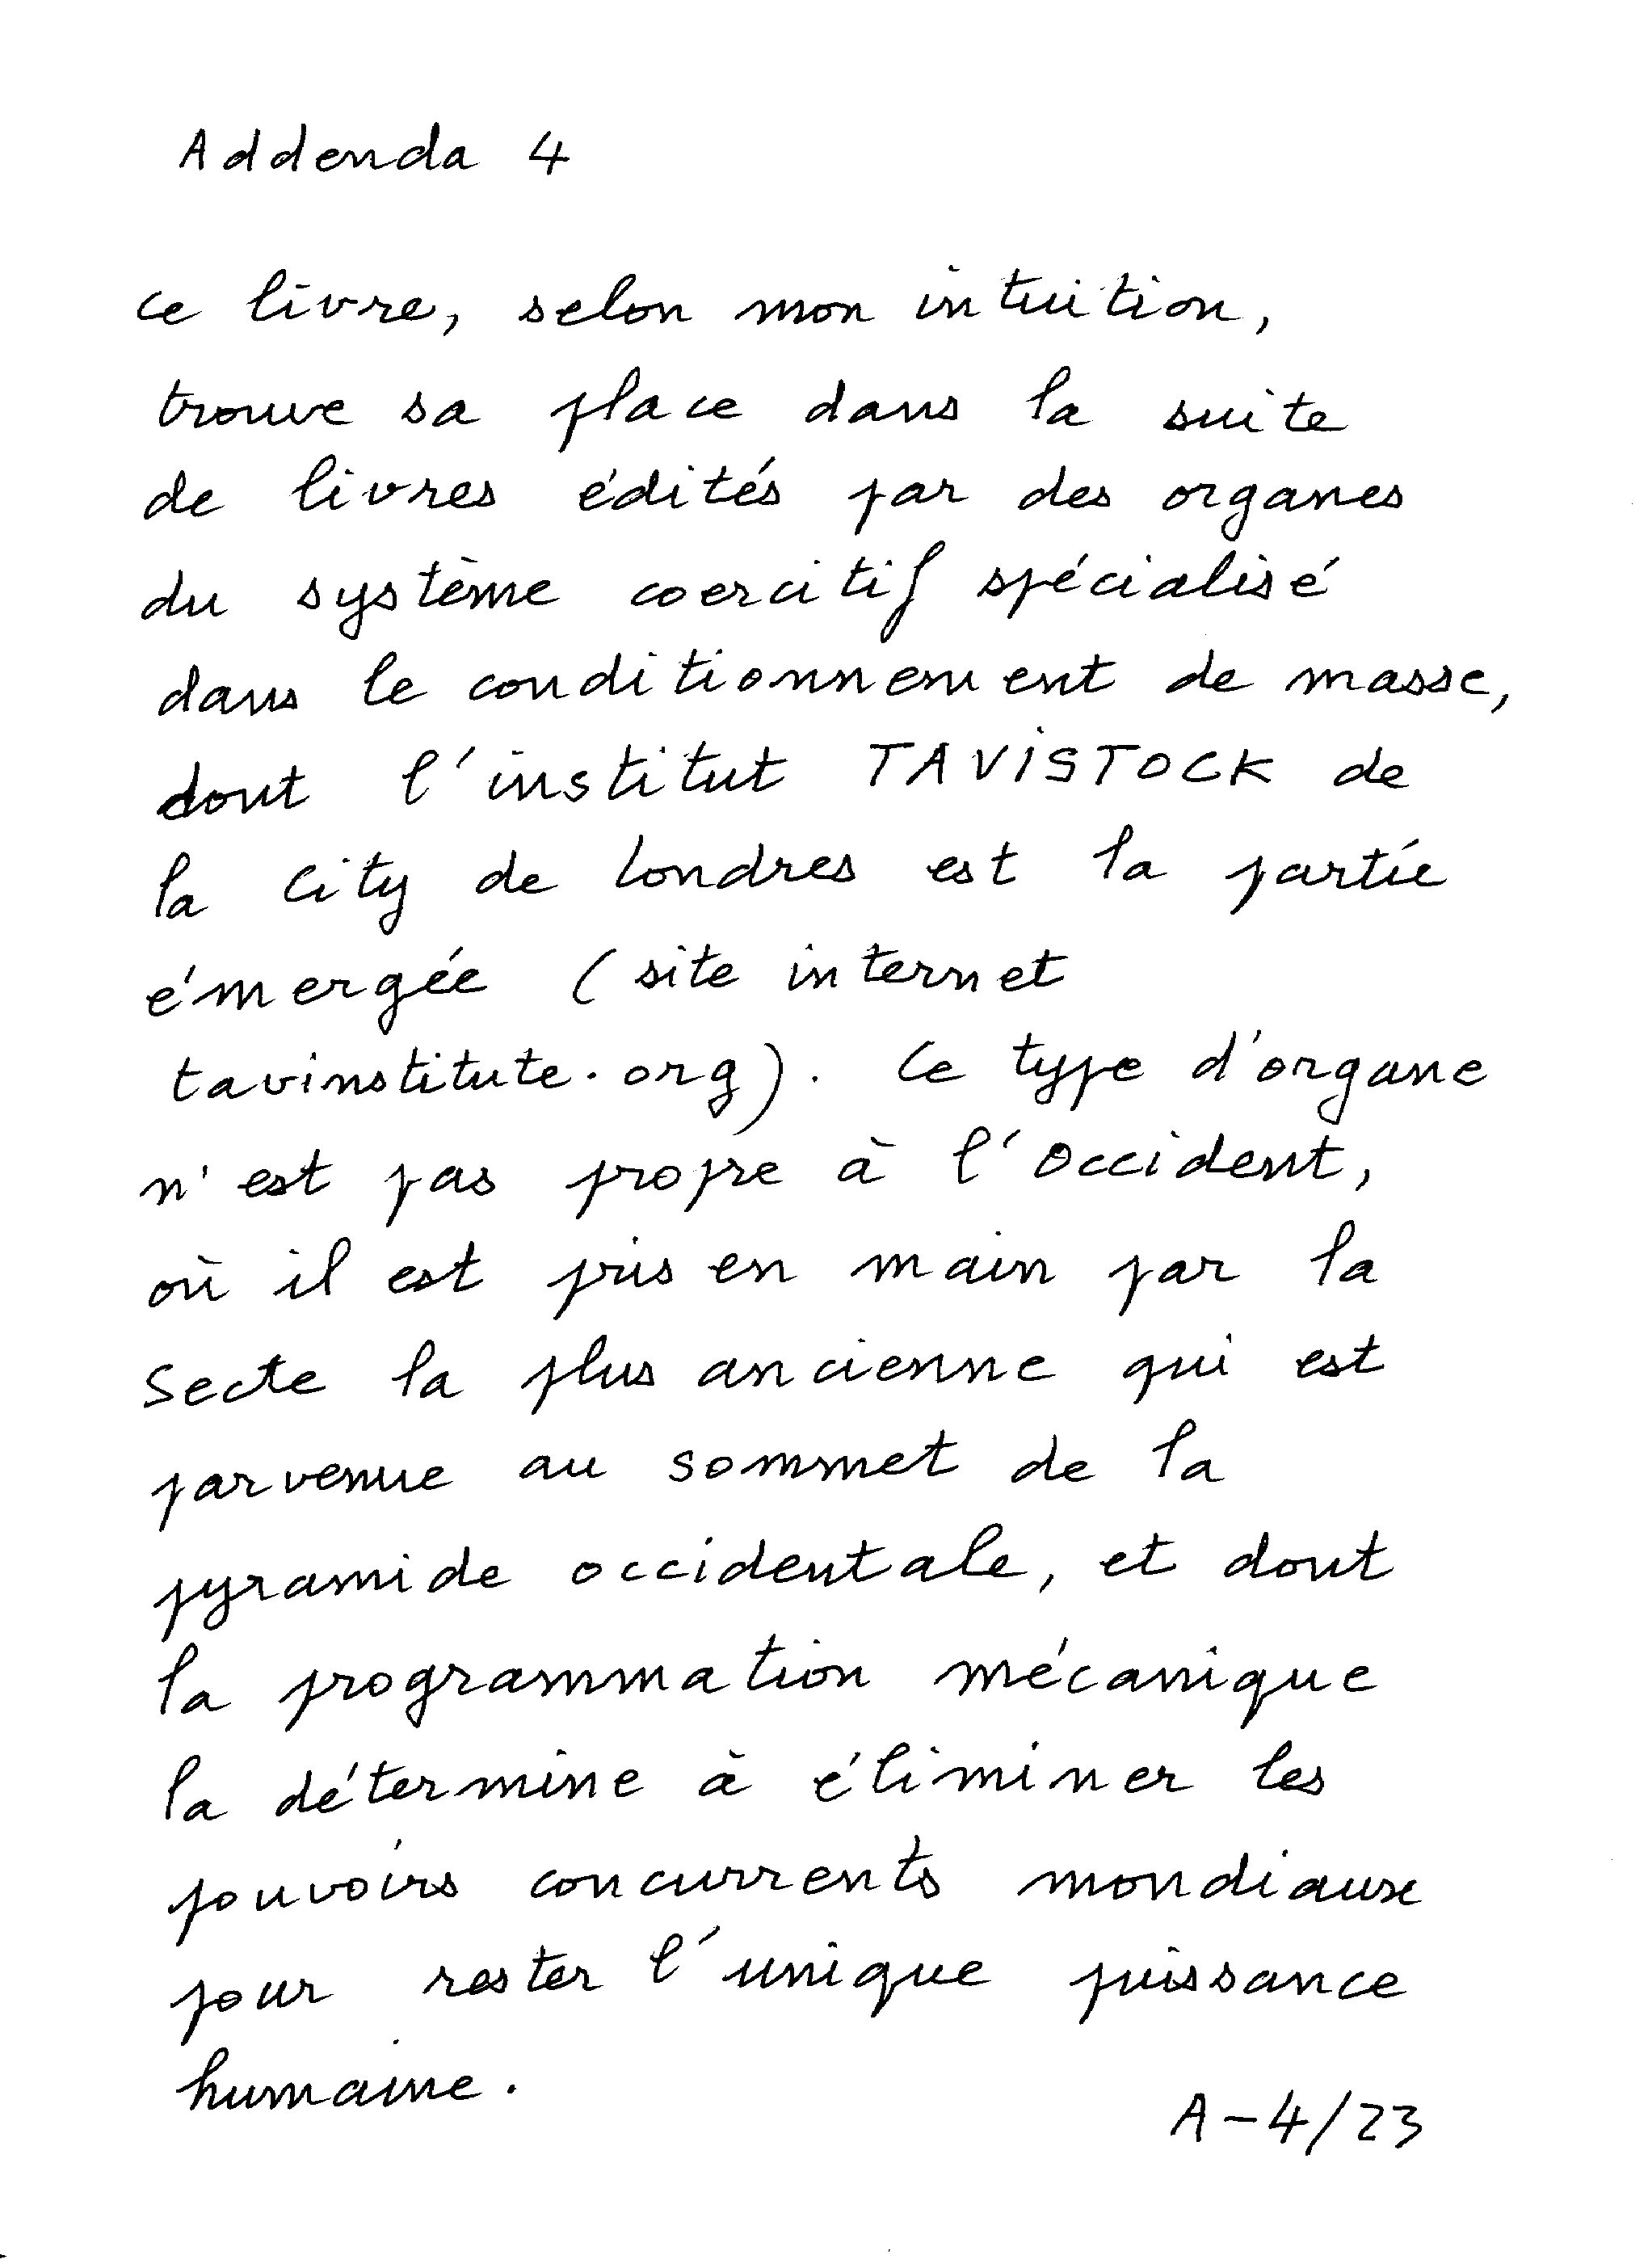 Addenda 4
Ce livre, selon mon intuition,
trouve sa place dans la suite
de livres édités par des organes
du système coercitif spécialisé
dans le conditionnement de masse,
dont l'institut TAVISTOCK de
la City de Londres est la partie
émergée (site internet
tavinstitute.org). Ce type d'organe
n'est pas propre à l'Occident,
où il est pris en main par la
Secte la plus ancienne qui est
parvenue au sommet de la
pyramide occidentale, et dont
la programmation mécanique
la détermine à éliminer les
pouvoirs concurrents mondiaux
pour rester l'unique puissance
humaine.
A-4/23